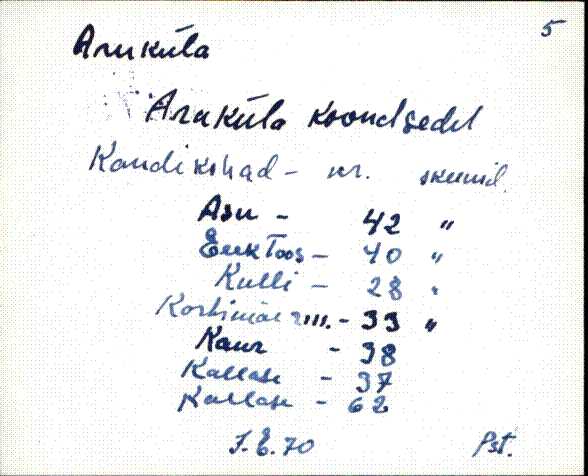 5
Aruküla
Aruküla koondsedel
Kandikohad - nr. skeemil.
Asu - 42 "
Eek Toos - 40 "
Kulli - 28 "
Kortimäe - 33 "
Kaur - 38
Kallase - 37
Kallase - 62
J.E.70 Pst.